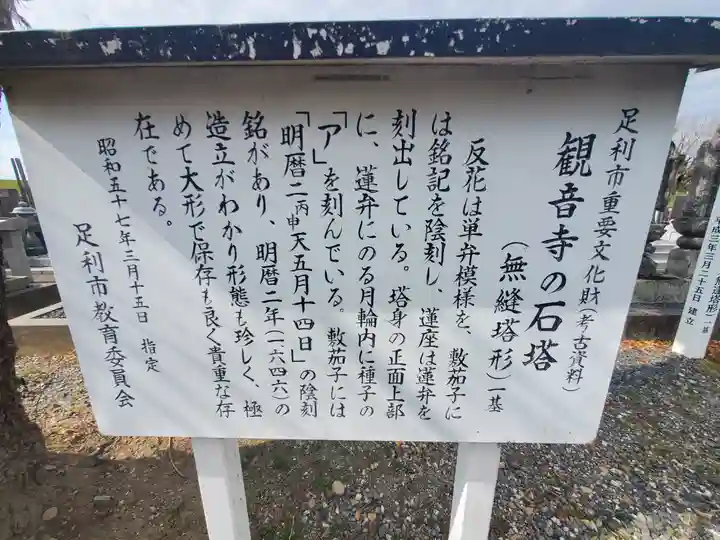 足利市重要文化財(考古資料)
観音寺の石塔
(無縫塔形)一基
反花は単弁模様を、敷茄子に
は銘記を陰刻し、蓮座は蓮弁を
刻出している。塔身の正面上部
に、蓮弁にのる月輪内に種子の
「ア」を刻んでいる。敷茄子には
「明暦二丙申天五月十四日」の陰刻
銘があり、明暦二年(一六四六)の
造立がわかり形態も珍しく、極
めて大形で保存も良く貴重な存
在である。
昭和五十七年三月十五日 指定
足利市教育委員会
(無縫塔形)一基
平成三年三月二十五日 建立